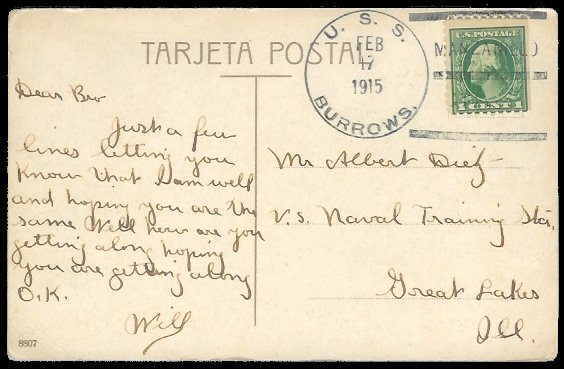 TARJETA POSTAL
U. S. S.
FEB
17
1915
BURROWS.
U.S. POSTAGE
1 CENT 1
Dear Bro
Just a few
lines letting you
Know that I am well
and hoping you are the
same Well how are you
getting along hoping
you are getting along
O.K.
Will
Mr Albert
U.S. Naval Training Sta.
Great Lakes
Ill.
8807